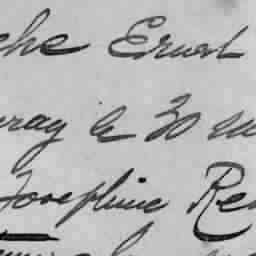 che Ernest
ray le 30
Josephine Re